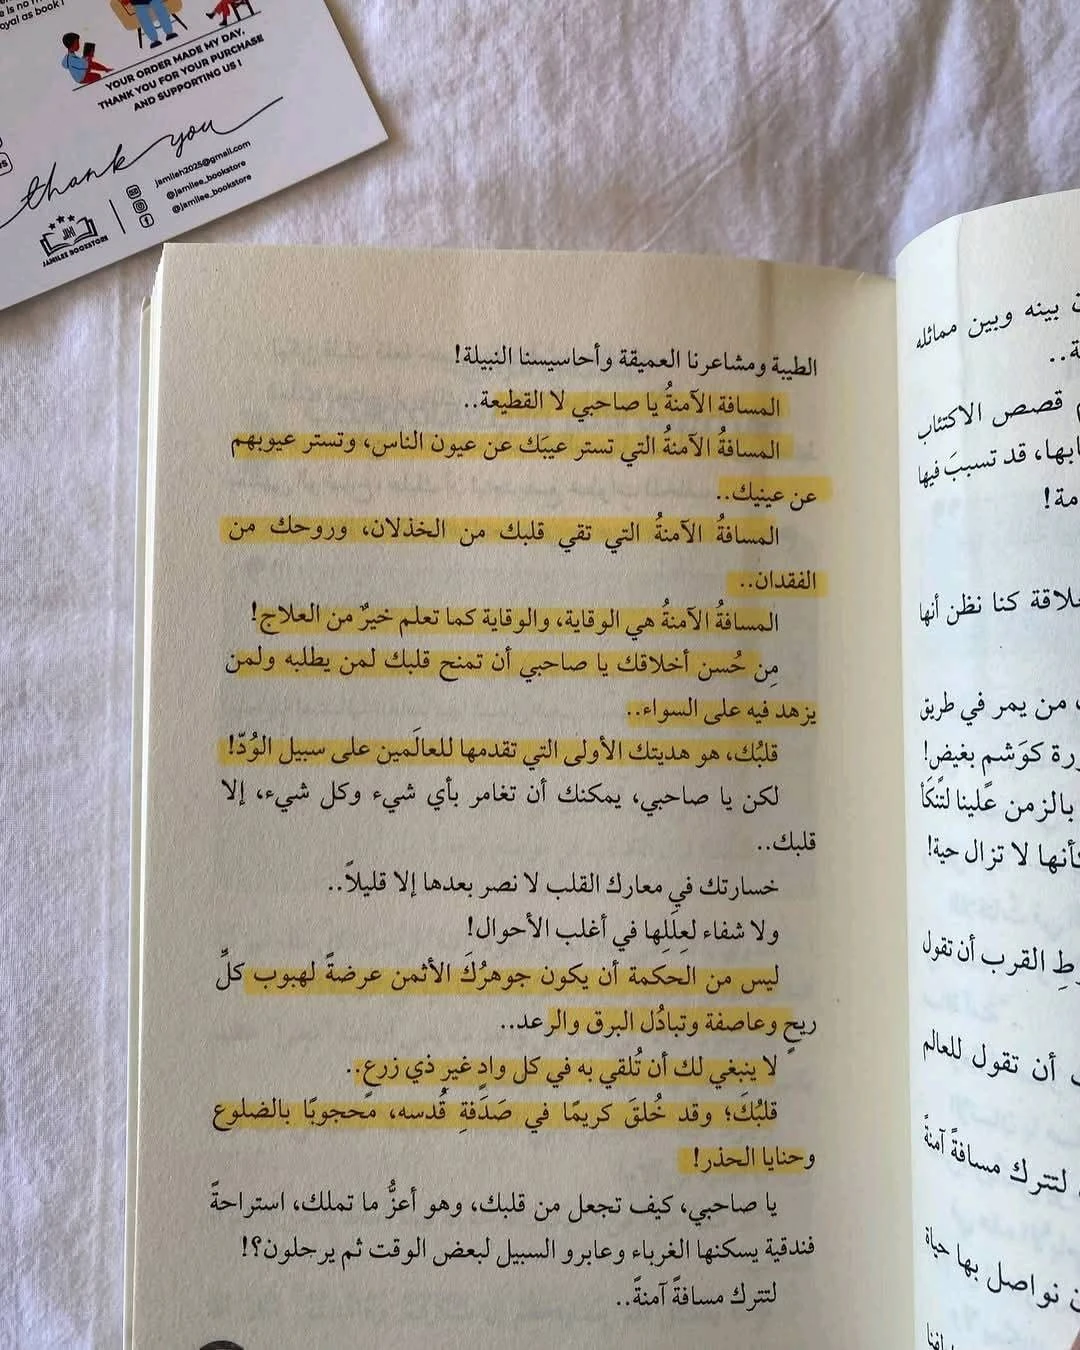 YOUR ORDER MADE MY DAY,
THANK YOU FOR YOUR PURCHASE
AND SUPPORTING US !
thank you
jamileh2025@gmail.com
@jamilee_bookstore
@jamilee_bookstore
JAMILEE BOOKSTORE
الطيبة ومشاعرنا العميقة وأحاسيسنا النبيلة!
المسافة الآمنةُ يا صاحبي لا القطيعة..
المسافةُ الآمنةُ التي تستر عيبَك عن عيون الناس، وتستر عيوبهم
عن عينيك..
المسافةُ الآمنةُ التي تقي قلبك من الخذلان، وروحك من
الفقدان..
المسافةُ الآمنةُ هي الوقاية، والوقاية كما تعلم خيرٌ من العلاج!
مِن حُسن أخلاقك يا صاحبي أن تمنح قلبك لمن يطلبه ولمن
يزهد فيه على السواء..
قلبُك، هو هديتك الأولى التي تقدمها للعالَمين على سبيل الوُدّ!
لكن يا صاحبي، يمكنك أن تغامر بأي شيء وكل شيء، إلا
قلبك..
خسارتك في معارك القلب لا نصر بعدها إلا قليلاً..
ولا شفاء لعِلَلِها في أغلب الأحوال!
ليس من الحكمة أن يكون جوهرُكَ الأثمن عرضةً لهبوب كلِّ
ريحٍ وعاصفة وتبادُل البرق والرعد..
لا ينبغي لك أن تُلقي به في كل وادٍ غيرِ ذي زرعٍ..
قلبُكَ؛ وقد خُلقَ كريمًا في صَدَفةِ قُدسه، محجوبًا بالضلوع
وحنايا الحذر!
يا صاحبي، كيف تجعل من قلبك، وهو أعزُّ ما تملك، استراحةً
فندقية يسكنها الغرباء وعابرو السبيل لبعض الوقت ثم يرحلون؟!
لتترك مسافةً آمنةً..
بينه وبين مماثله
قصص الاكتئاب
قد تسببَ فيها
علاقة كنا نظن أنها
من يمر في طريق
كوَشمٍ بغيض!
بالزمن علينا لتَنكَأ
كأنها لا تزال حية!
القرب أن تقول
أن تقول للعالم
لتترك مسافةً آمنةً
نواصل بها حياة